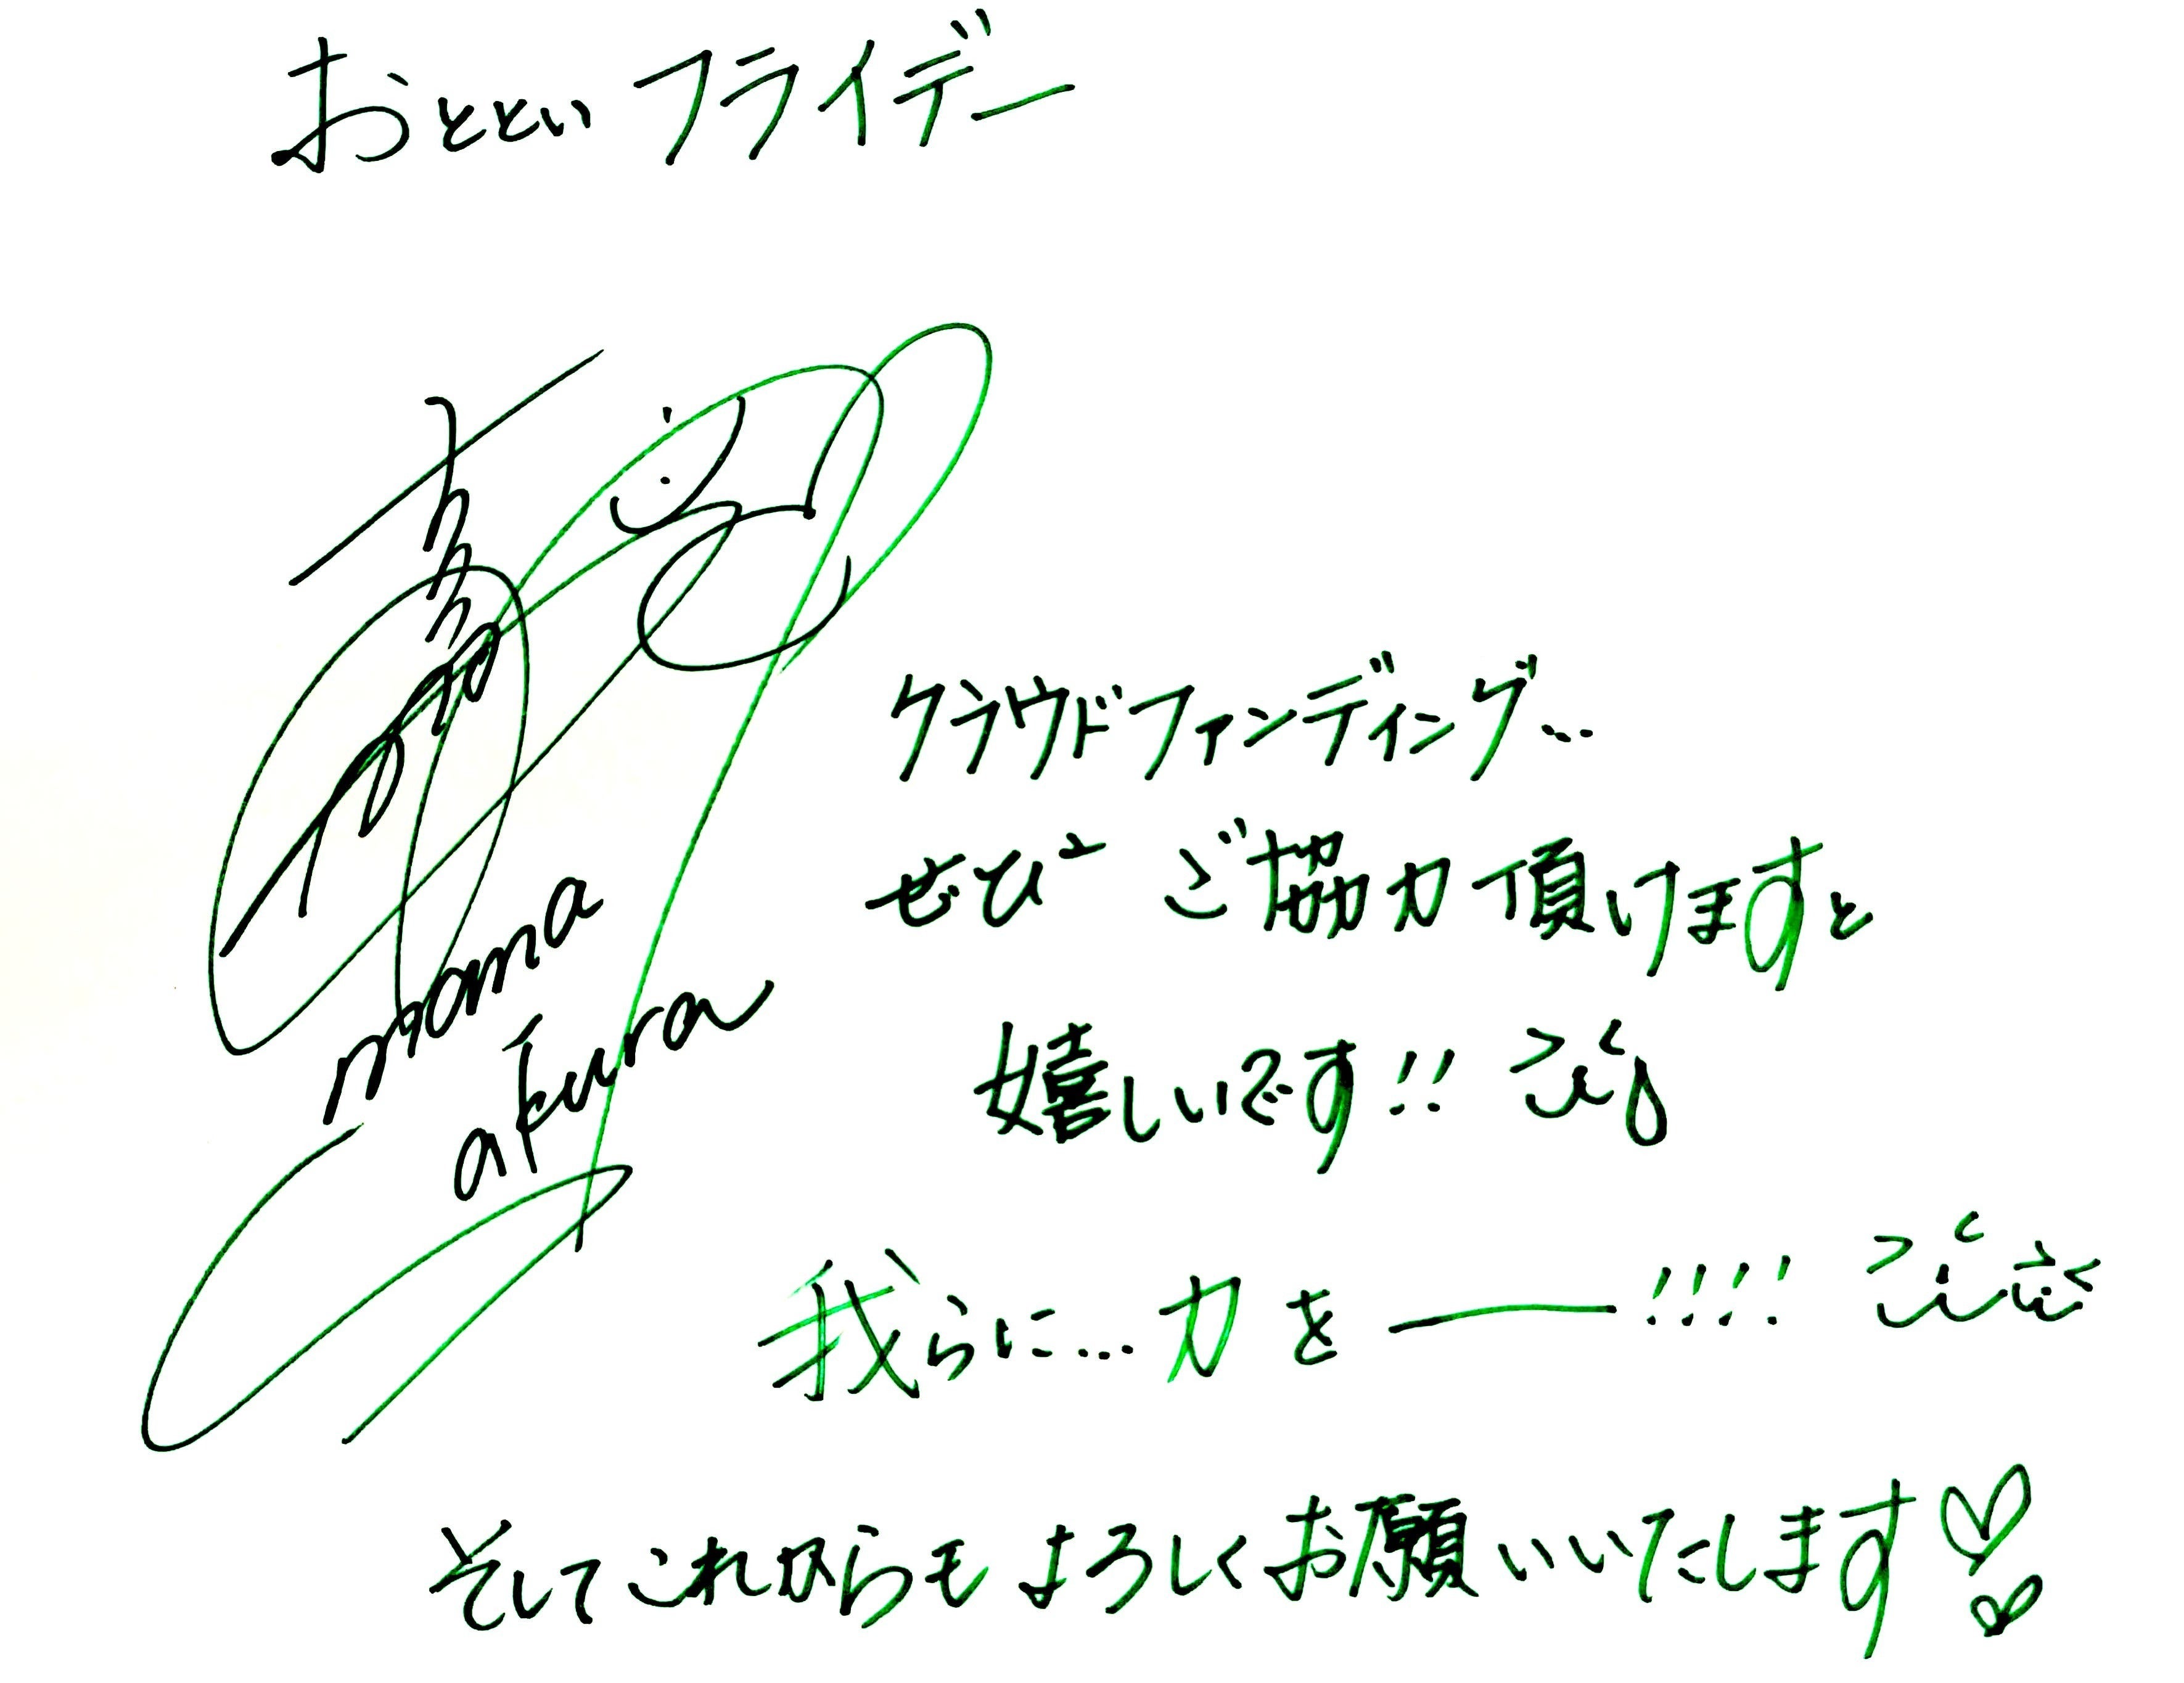 おとといフライデー
moma
akura
クラウドファンディング…
ぜひ ご協力頂けますと
嬉しいです!!
我らに…力を――!!!!
そしてこれからもよろしくお願いいたします♡